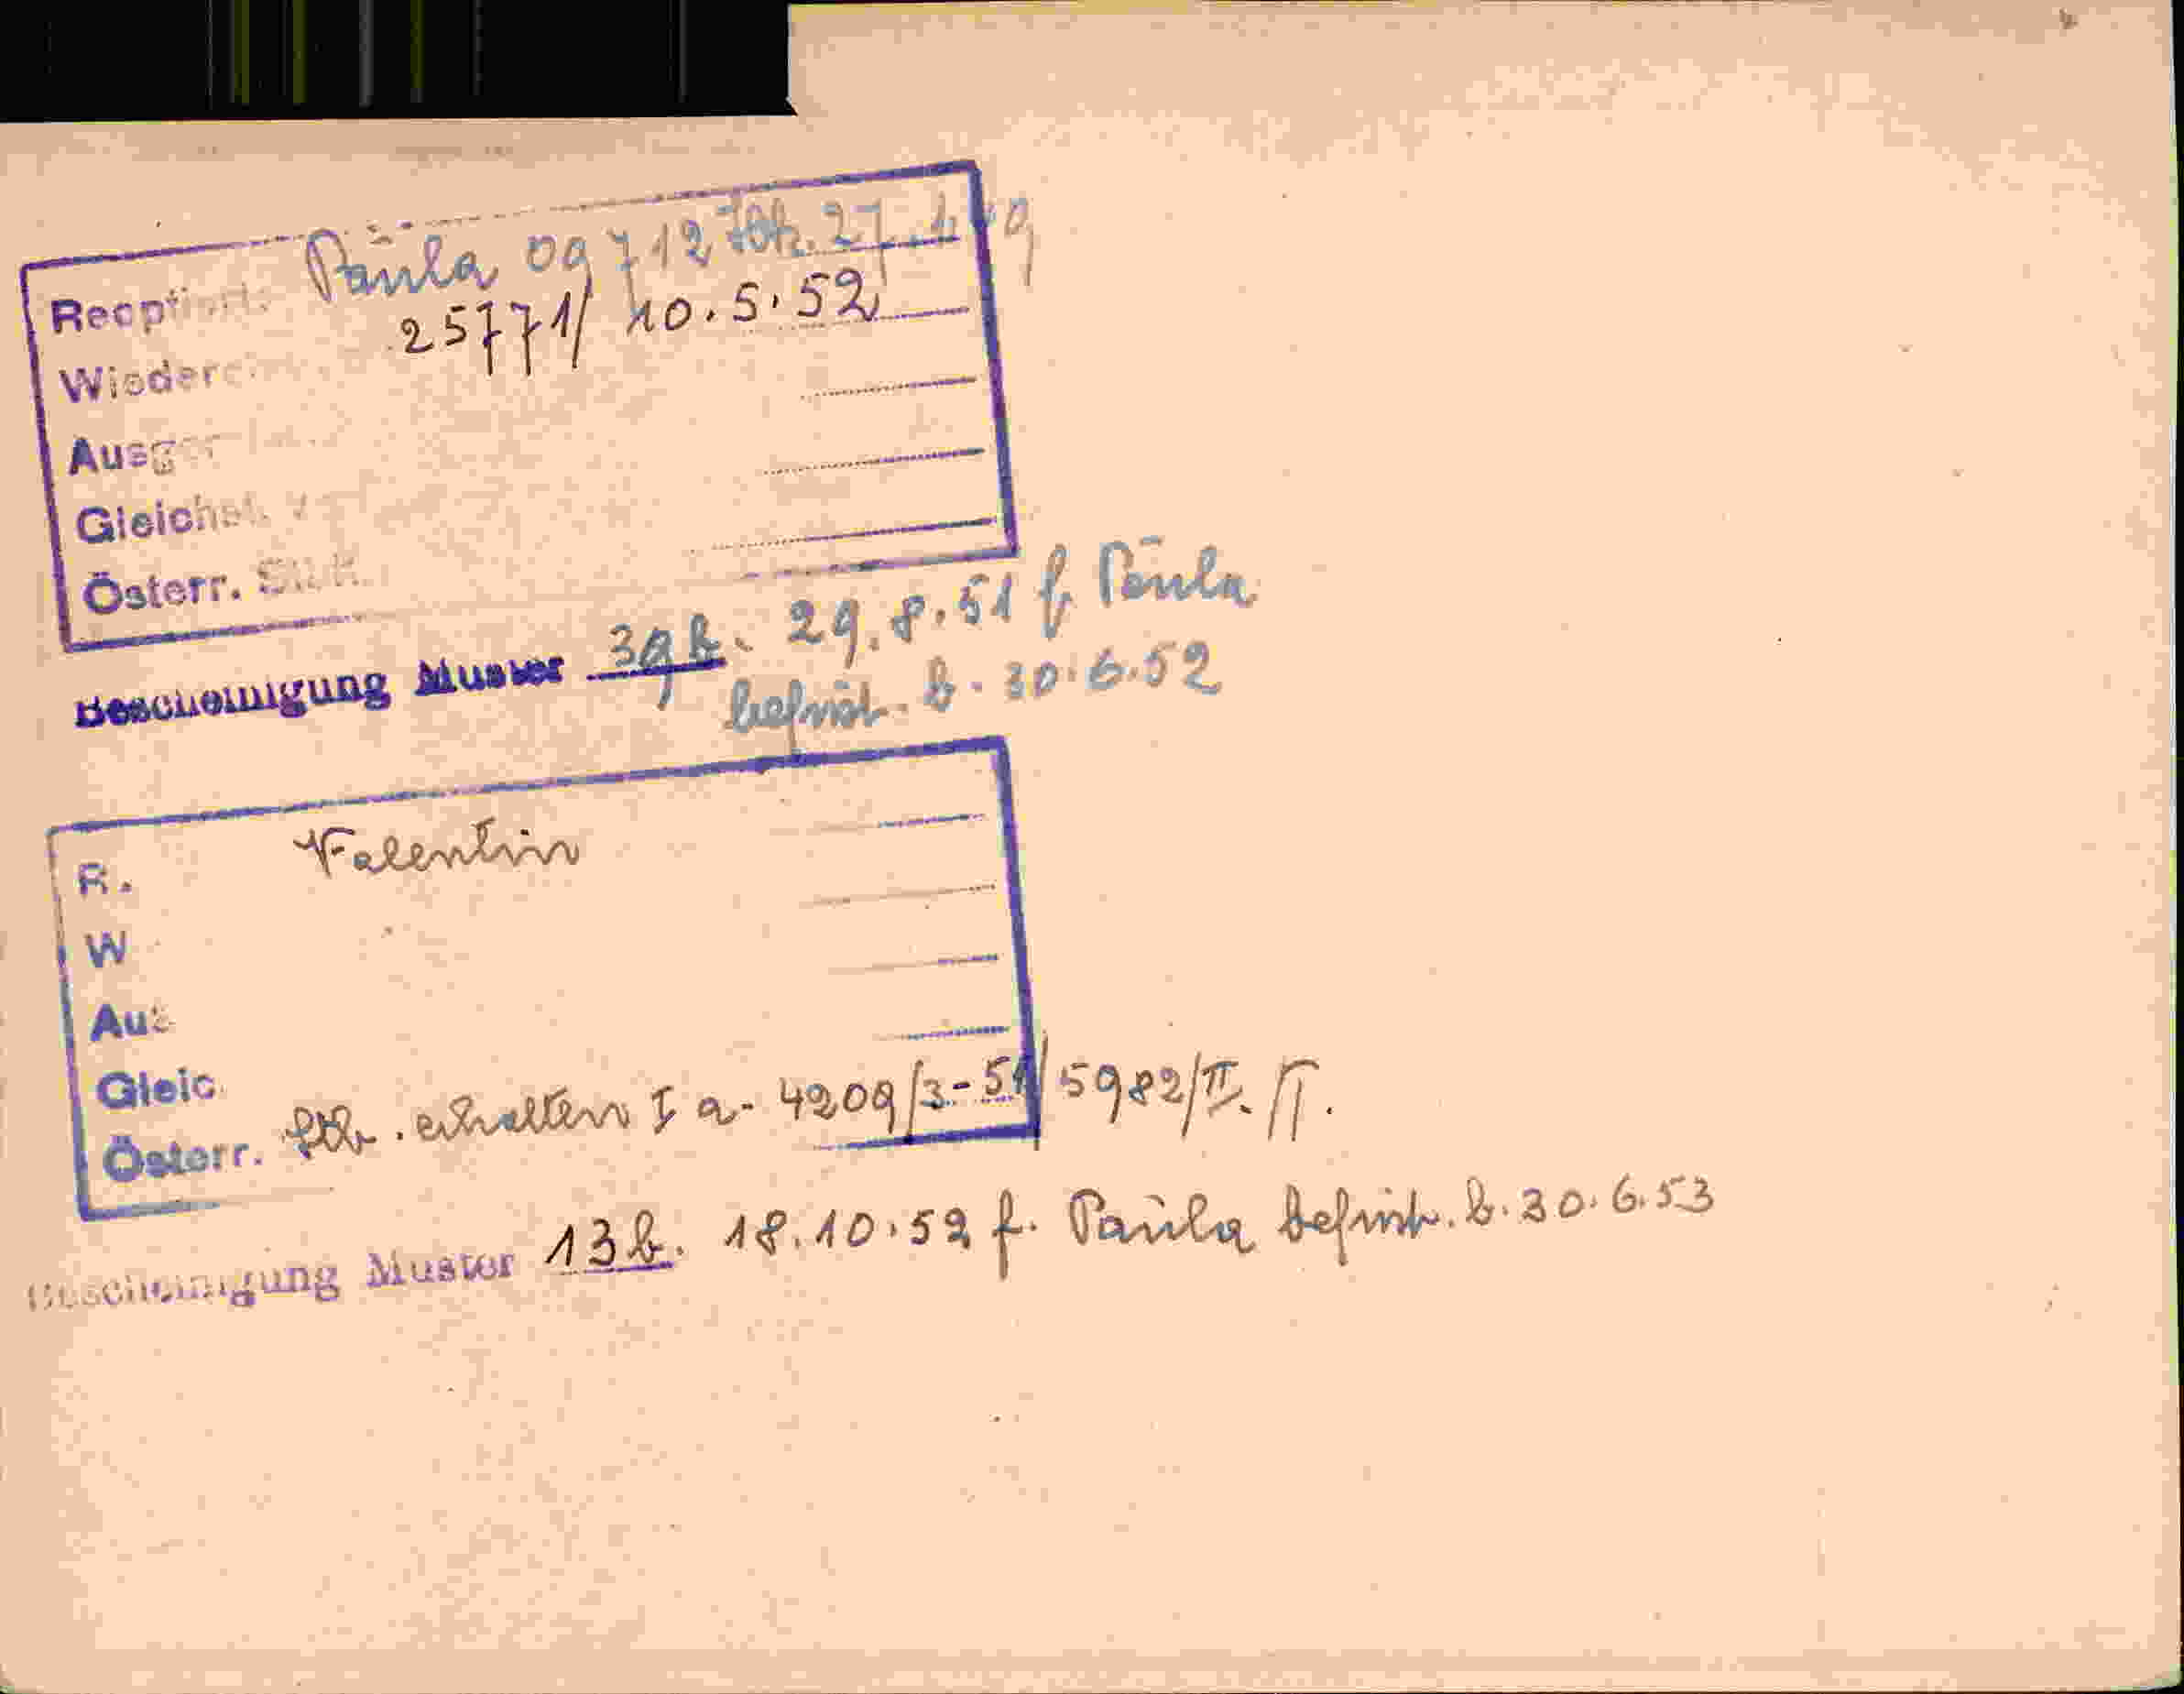 Paula 09712
Reoptiert:
25771/ 10.5.52
Österr. St.B.
Bescheinigung Muster 39b. 29.8.51 f. Paula
befrist. b. 30.6.52
Valentin
R.
W
Aus
Gleic
Österr. erhalten I a - 4209/3-51/5982/II.
Bescheinigung Muster 13b. 18.10.52 f. Paula befrist. b. 30.6.53